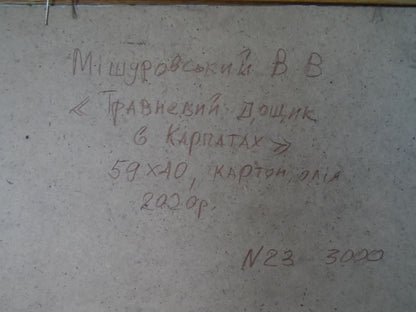 Мішуровський В В
« Травневий дощик
в Карпатах »
59х40, картон олія
2020р.
N23 3000